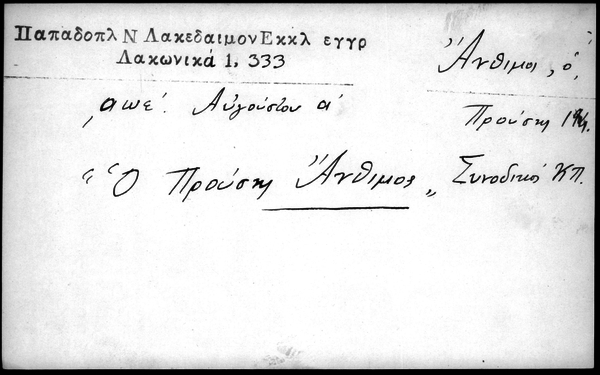 Παπαδοπλ Ν Λακεδαιμον Εκκλ εγγρ
Λακωνικά 1, 333
Ἄνθιμος, ὁ,
͵αωε΄. Αὐγούστου α΄
Προύσης
"Ὁ Προύσης Ἄνθιμος„ Συνοδικός ΚΠ.